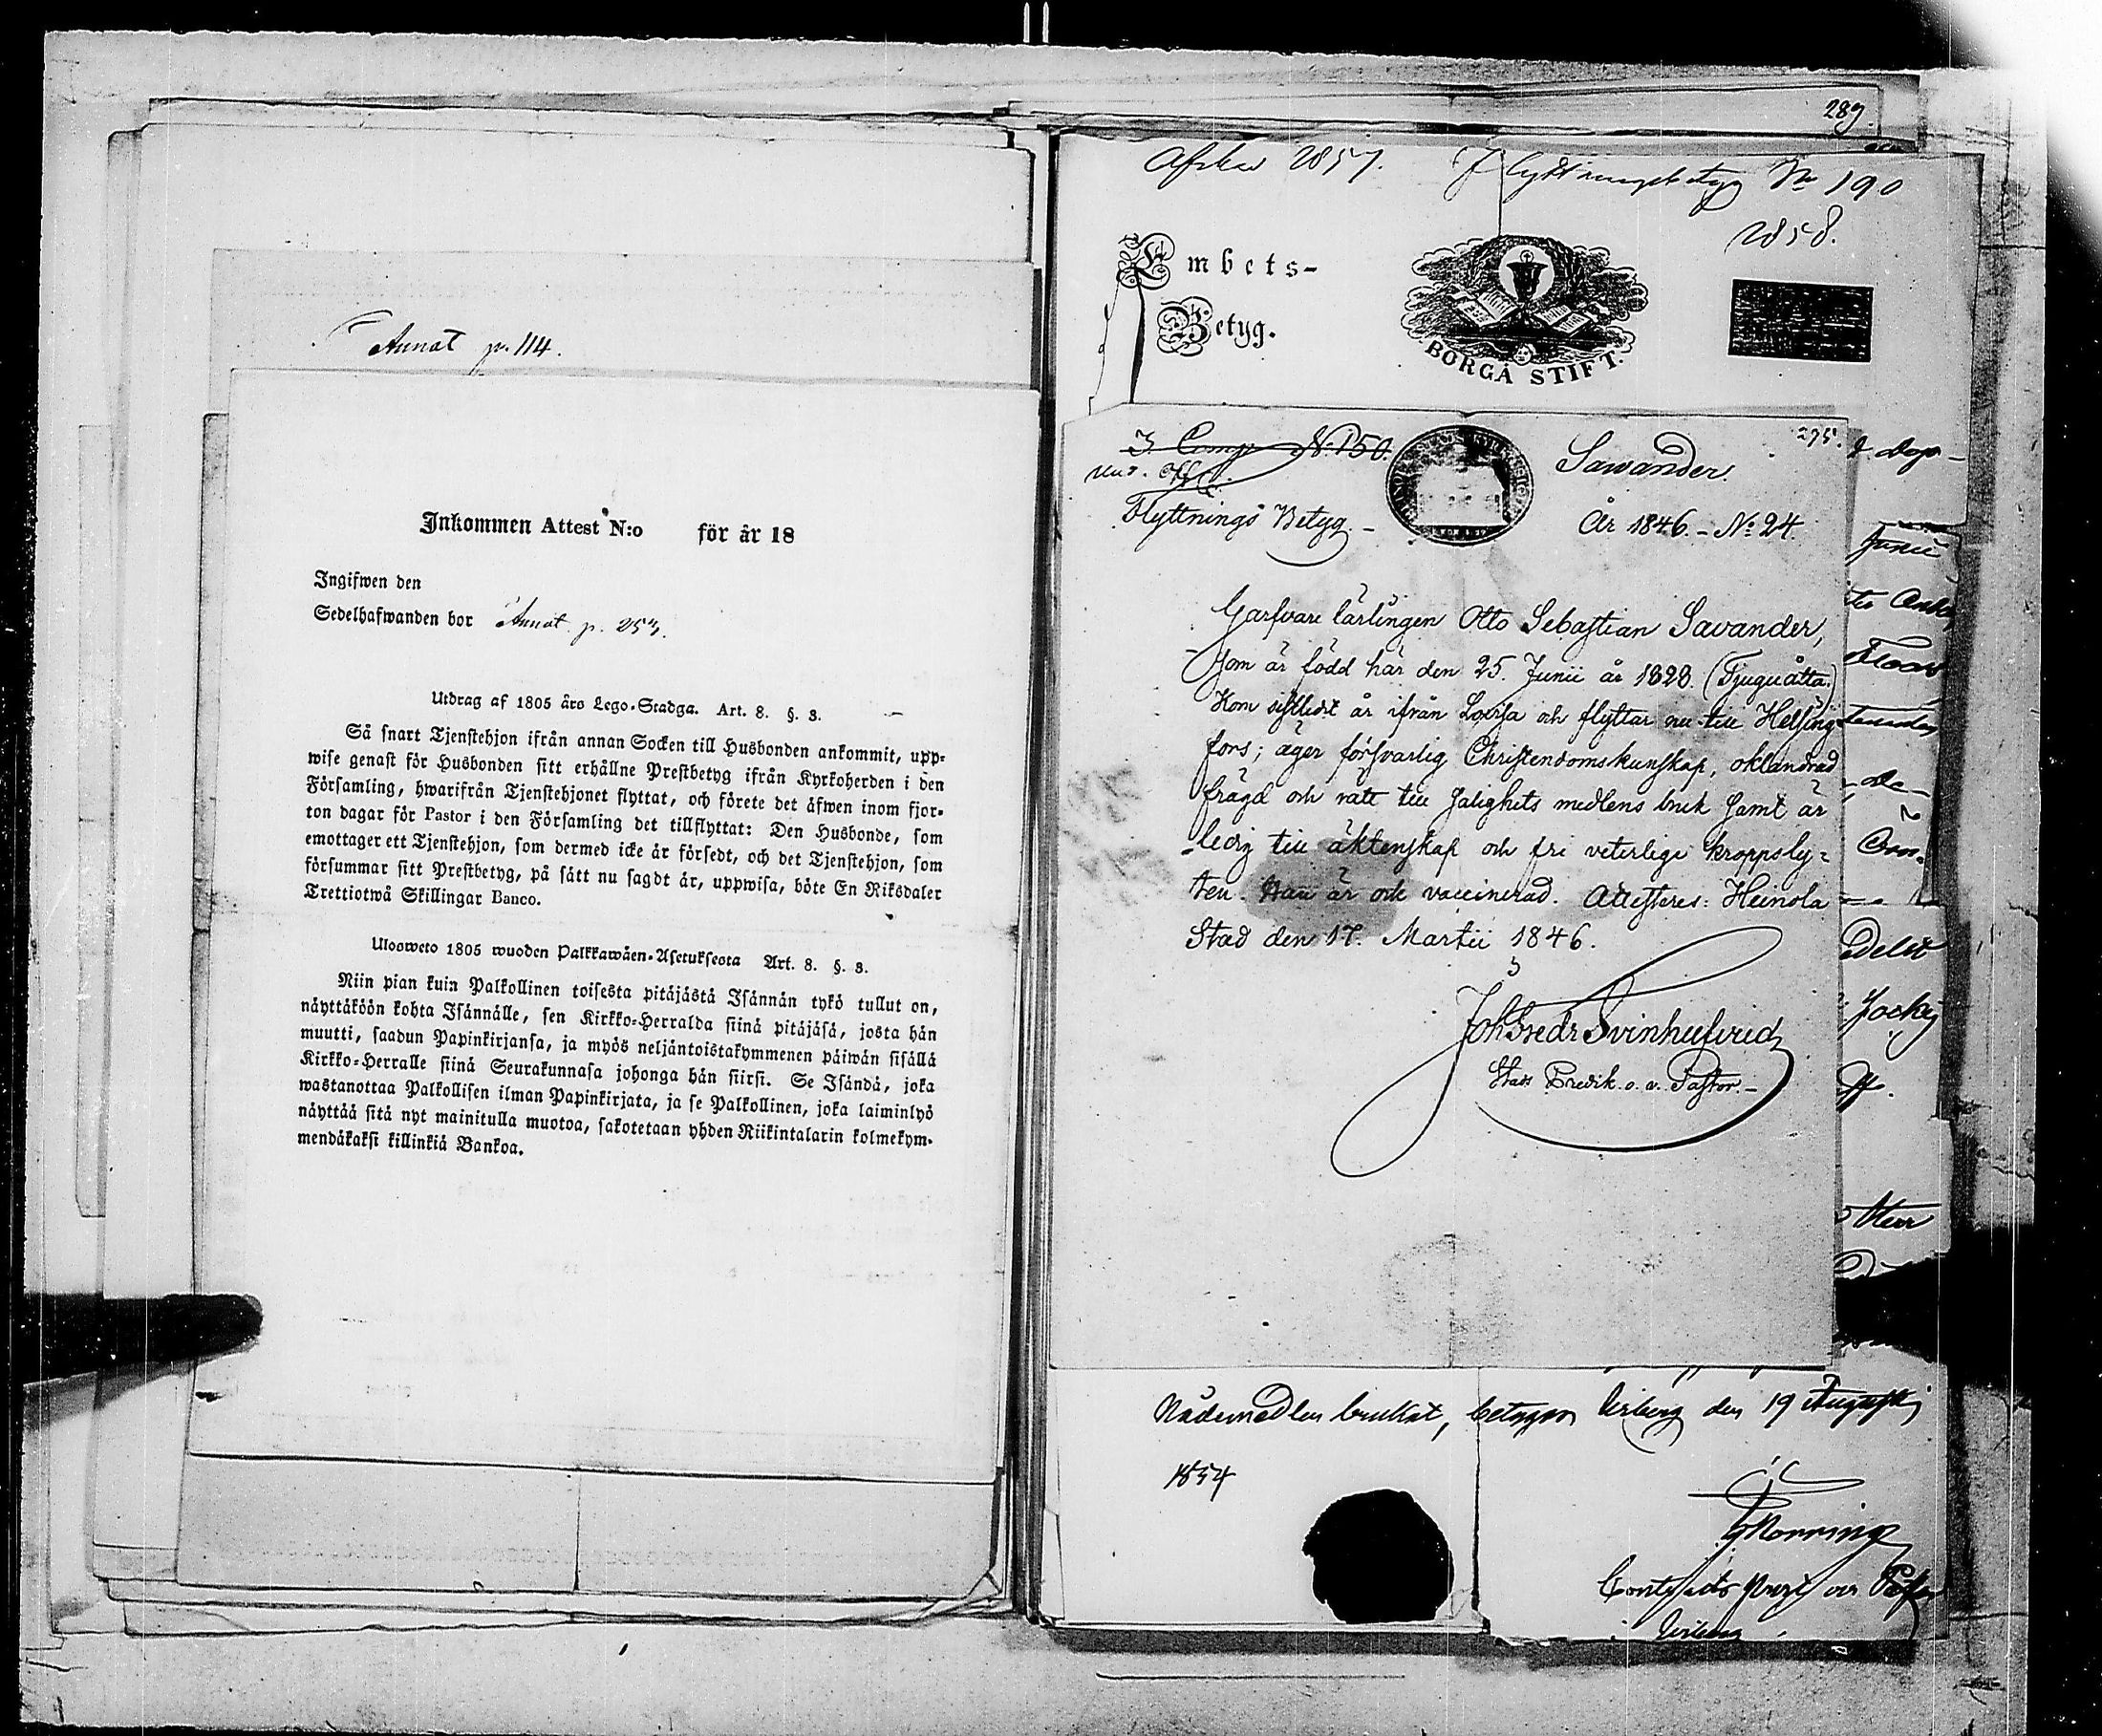 Annot p. 114.
Inkommen Attest N:o för år 18
Ingifwen den
Sedelhafwanden bor Annot. p. 257.
Utdrag af 1805 års Lego-Stadga. Art. 8. §. 3.
Så snart Tjenstehjon ifrån annan Socken till Husbonden ankommit, upp-
wise genast för Husbonden sitt erhållne Prestbetyg ifrån Kyrkoherden i den
Församling, hwarifrån Tjenstehjonet flyttat, och förete det äfwen inom fjor-
ton dagar för Pastor i den Församling det tillflyttat: Den Husbonde, som
emottager ett Tjenstehjon, som dermed icke är försedt, och det Tjenstehjon, som
försummar sitt Prestbetyg, på sätt nu sagdt är, uppwisa, böte En Riksdaler
Trettiotwå Skillingar Banco.
Ulosweto 1805 wuoden Palkkawäen-Asetuksesta Art. 8. §. 3.
Niin pian kuin Palkollinen toisesta pitäjästä Isännän tykö tullut on,
näyttäköön kohta Isännälle, sen Kirkko-Herralda siinä pitäjäsä, josta hän
muutti, saadun Papinkirjansa, ja myös neljäntoistakymmenen päiwän sisällä
Kirkko-Herralle siinä Seurakunnasa johonga hän siirsi. Se Isändä, joka
wastanottaa Palkollisen ilman Papinkirjata, ja se Palkollinen, joka laiminlyö
näyttää sitä nyt mainitulla muotoa, sakotetaan yhden Riikintalarin kolmekym-
mendäkaksi killinkiä Bankoa.
289.
1857. Flyttningsbetyg No 190
1858.
Embets-
Betyg.
BORGÅ STIFT.
275.
3 Comp N:150.
Sawander.
Flyttnings Betyg. -
År 1846. - No 24.
Garfvare lärlingen Otto Sebastian Savander,
som är född här den 25. Junii år 1828. (Tjuguåtta.)
Kom sistledit år ifrån Lovisa och flyttar nu till Helsing
fors; äger försvarlig Christendomskunskap, oklandrad
frägd och rätt till salighets medlens bruk samt är
ledig till äktenskap och fri veterlige kroppsly=
ten. Han är ock vaccinerad. Attesteres: Heinola
Stad den 17. Martii 1846.
Joh Fredr Svinhufvud
Stads Predik. o. v. Pastor. -
Junii
Nådemedlen brukat, betygar den 19 Augusti
1854